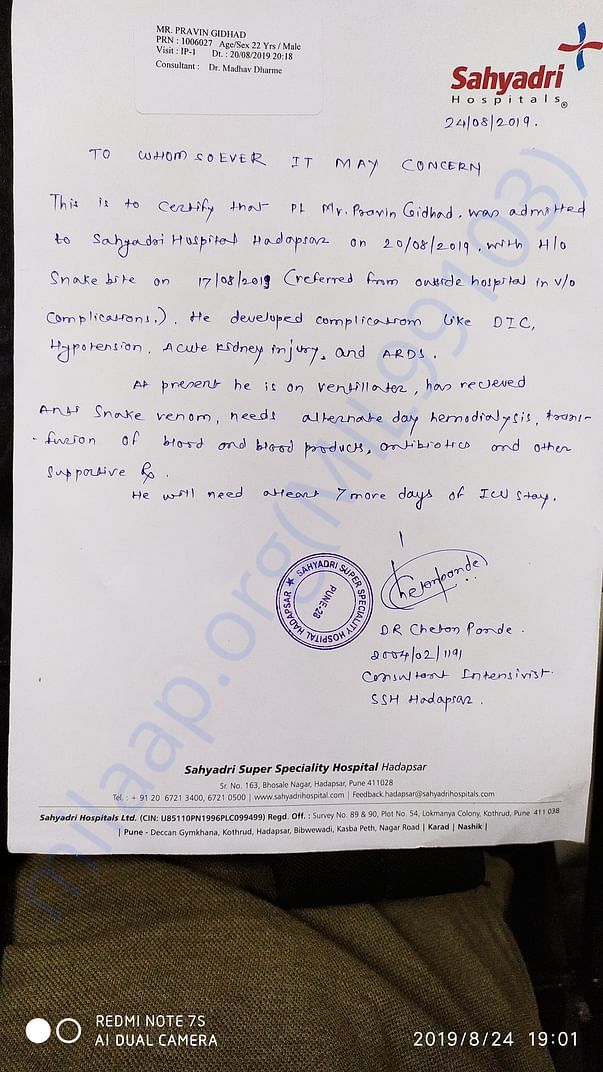 MR. PRAVIN GIDHAD
PRN : 1006027 Age/Sex 22 Yrs / Male
Visit : IP-1 Dt. : 20/08/2019 20:18
Consultant : Dr. Madhav Dharme
Sahyadri
Hospitals®
24/08/2019.
TO WHOMSOEVER IT MAY CONCERN
This is to certify that Pt Mr. Pravin Gidhad. was admitted
to Sahyadri Hospital Hadapsar on 20/08/2019. with H/o
Snake bite on 17/08/2019 (referred from outside hospital in v/o
complications.). He developed complications like DIC,
Hypotension, Acute kidney injury, and ARDS.
At present he is on ventillator, has recieved
Anti Snake venom, needs alternate day hemodialysis, trans-
-fusion of blood and blood products, antibiotics and other
supportive Rx.
He will need atleast 7 more days of ICU stay.
Chetonponde
SAHYADRI SUPER SPECIALITY HOSPITAL HADAPSAR ★
PUNE-28
DR Cheton Ponde.
2004/02/1191
Consultant Intensivist.
SSH Hadapsar.
milaap.org(MIL99103)
Sahyadri Super Speciality Hospital Hadapsar
Sr. No. 163, Bhosale Nagar, Hadapsar, Pune 411028
Tel. : + 91 20 6721 3400, 6721 0500 | www.sahyadrihospital.com | Feedback.hadapsar@sahyadrihospitals.com
Sahyadri Hospitals Ltd. (CIN: U85110PN1996PLC099499) Regd. Off. : Survey No. 89 & 90, Plot No. 54, Lokmanya Colony, Kothrud, Pune 411 038
| Pune - Deccan Gymkhana, Kothrud, Hadapsar, Bibwewadi, Kasba Peth, Nagar Road | Karad | Nashik |
REDMI NOTE 7S
AI DUAL CAMERA
2019/8/24 19:01